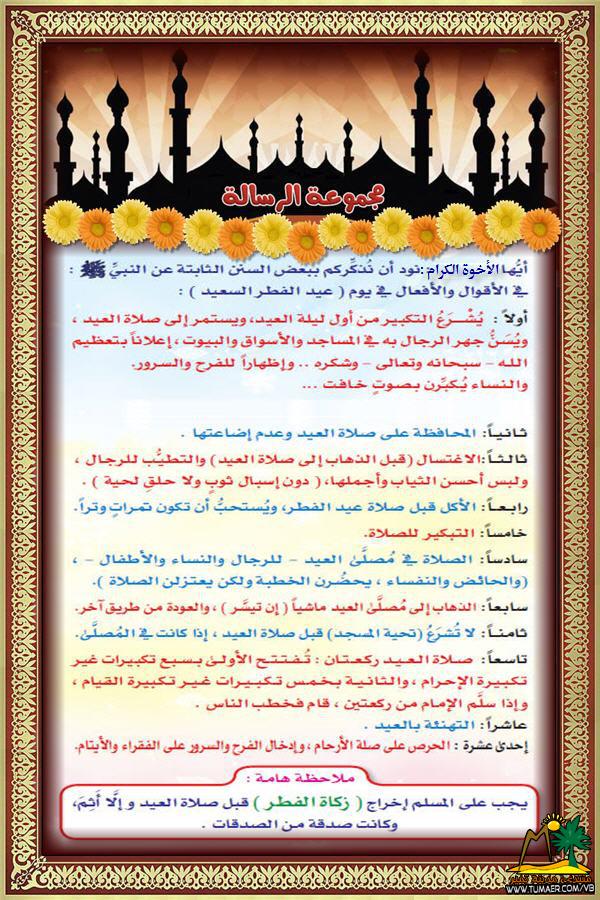 مجموعة الرسالة
أيُّها الأخوة الكرام : نود أن نُذكِّركم ببعض السنن الثابتة عن النبيِّ ﷺ :
في الأقوال والأفعال في يوم ( عيد الفطر السعيد ) :
أولاً : يُشْــرَعُ التكبير من أول ليلة العيد، ويستمر إلى صلاة العيد ،
ويُسَنُّ جهر الرجال به في المساجد والأسواق والبيوت ، إعلاناً بتعظيم
اللـه – سبحانه وتعالى – وشكره .. وإظهاراً للفرح والسرور.
والنساء يُكبِّرن بصوتٍ خافت ...
ثانيـاً: المحافظة على صلاة العيد وعدم إضاعتها .
ثالثـاً:الاغتسال (قبل الذهاب إلى صلاة العيد) والتطيُّب للرجال ،
ولبس أحسن الثياب وأجملها، ( دون إسبال ثوبٍ ولا حلقِ لحية ) .
رابعـاً: الأكل قبل صلاة عيد الفطر، ويُستحبُّ أن تكون تمراتٍ وتراً.
خامساً: التبكير للصلاة.
سادساً: الصلاة في مُصلَّىٰ العيد – للرجال والنساء والأطفال – ،
(والحائض والنفساء ، يحضُرن الخطبة ولكن يعتزلن الصلاة ).
سابعـاً: الذهاب إلى مُصلَّىٰ العيد ماشياً ( إن تيسَّر ) ، والعودة من طريق آخر.
ثامنـاً: لا تُشرَعُ (تحية المسجد) قبل صلاة العيد ، إذا كانت في المُصلَّىٰ.
تاسعاً: صلاة العيد ركعتان : تُفتتح الأولىٰ بسبع تكبيرات غير
تكبيرة الإحرام ، والثانية بخمس تكبيرات غير تكبيرة القيام ،
وإذا سلَّم الإمام من ركعتين ، قام فخطب الناس .
عاشراً: التهنئة بالعيد .
إحدىٰ عشرة : الحرص على صلة الأرحام ، وإدخال الفرح والسرور على الفقراء والأيتام.
ملاحظة هامة :
يجب على المسلم إخراج ( زكاة الفطر ) قبل صلاة العيد و إلَّا أَثِمَ،
وكانت صدقة من الصدقات .
WWW.TUMAER.COM/VB